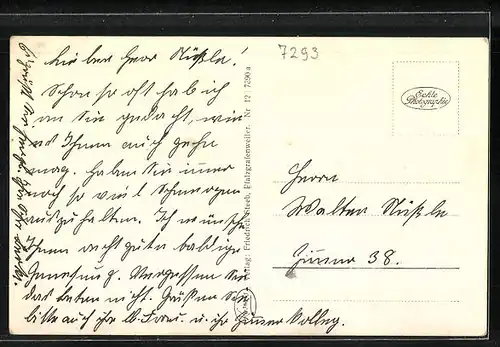 7293
Lieber Herr Nüßle!
Schon so oft hab ich
an Sie gedacht, wie
es Ihnen auch gehn
mag. Haben Sie immer
noch so viel Schmerzen
auszuhalten. Ich wünsche
Ihnen recht gute baldige
Genesung. Vergessen Sie
das beten nicht. Grüßen Sie
bitte auch ihre u. ihr Zimmerkolleg.
Verlag: Friedrich Bleeh, Pfalzgrafenweiler. Nr. 12 7390a
Echte
Photographie
Herrn
Walter Nüßle
Zimmer 38.